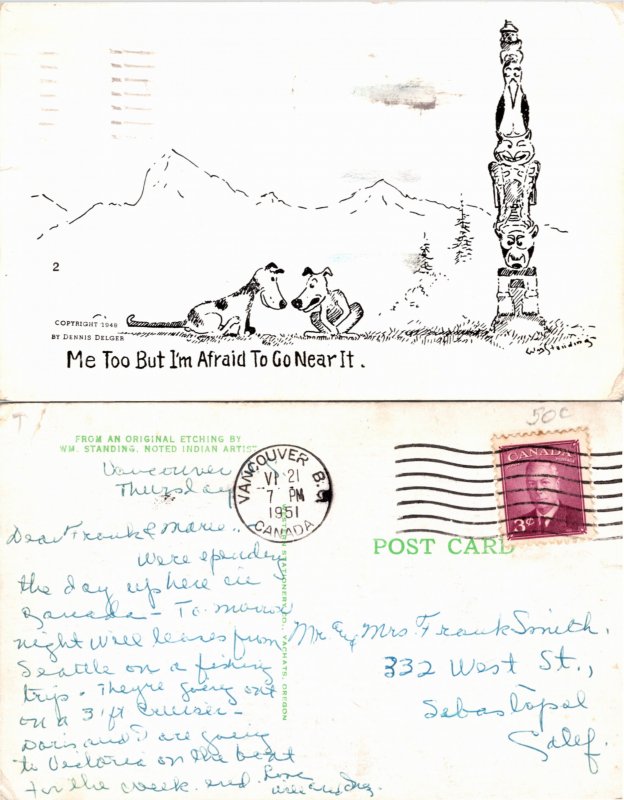 2
COPYRIGHT 1948
BY DENNIS DELGER
Wm Standing
Me Too But I'm Afraid To Go Near It.
50¢
FROM AN ORIGINAL ETCHING BY
WM. STANDING, NOTED INDIAN ARTIST
VANCOUVER B.C.
VI 21
7 PM
1951
CANADA
CANADA
3¢
POST CARD
STATIONERY CO., YACHATS, OREGON
Vancouver
Thursday
Dear Frank & Marie.
Were spending
the day up here in
Canada - To morrow
night will leave from
Seattle on a fishing
trip. They're going out
on a 31 ft cruiser -
Doris and I are going
to Victoria on the boat
for the week end. Love
Mr and Mrs. Frank Smith.
332 West St.,
Sebastopol
Calif.